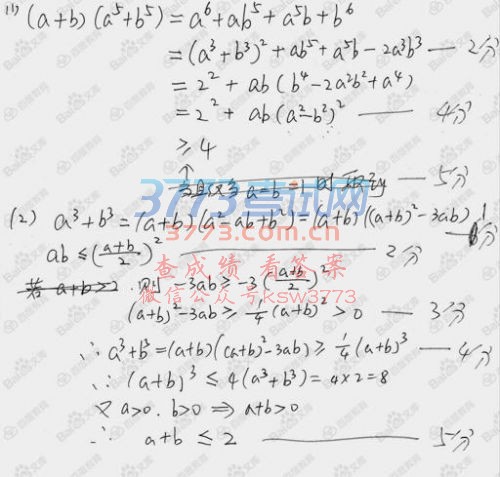 (1) (a+b)(a⁵+b⁵)=a⁶+ab⁵+a⁵b+b⁶
=(a³+b³)²+ab⁵+a⁵b-2a³b³ — 2分
=2²+ab(b⁴-2a²b²+a⁴)
=2²+ab(a²-b²)² — 4分
≥4
↑
当且仅当a=b=1时取到 — 5分
(2) a³+b³=(a+b)(a²-ab+b²)=(a+b)((a+b)²-3ab) 1分
ab≤((a+b)/2)² — 2分
若a+b>2.则 -3ab≥-3((a+b)/2)²
(a+b)²-3ab≥¼(a+b)²>0 — 3分
∴a³+b³=(a+b)((a+b)²-3ab)≥¼(a+b)³ — 4分
∴(a+b)³≤4(a³+b³)=4×2=8
又a>0.b>0⟹a+b>0
∴ a+b≤2 — 5分
3773考试网
www.3773.com.cn
查成绩 看答案
微信公众号ksw3773
Bai文库
百度教育